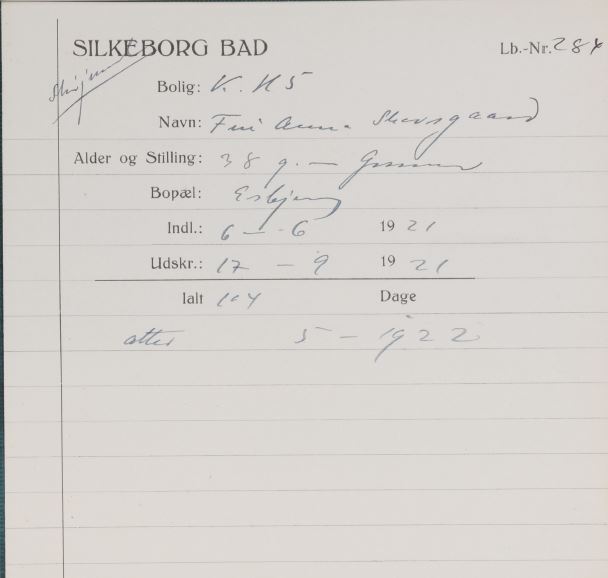 SILKEBORG BAD Lb.-Nr. 284
Bolig: K. H 5
Navn: Fru Anna Skovsgaard
Alder og Stilling: 38 g. —
Bopæl: Esbjerg
Indl.: 6 — 6 1921
Udskr.: 17 — 9 1921
Ialt 104 Dage
atter 5 — 1922